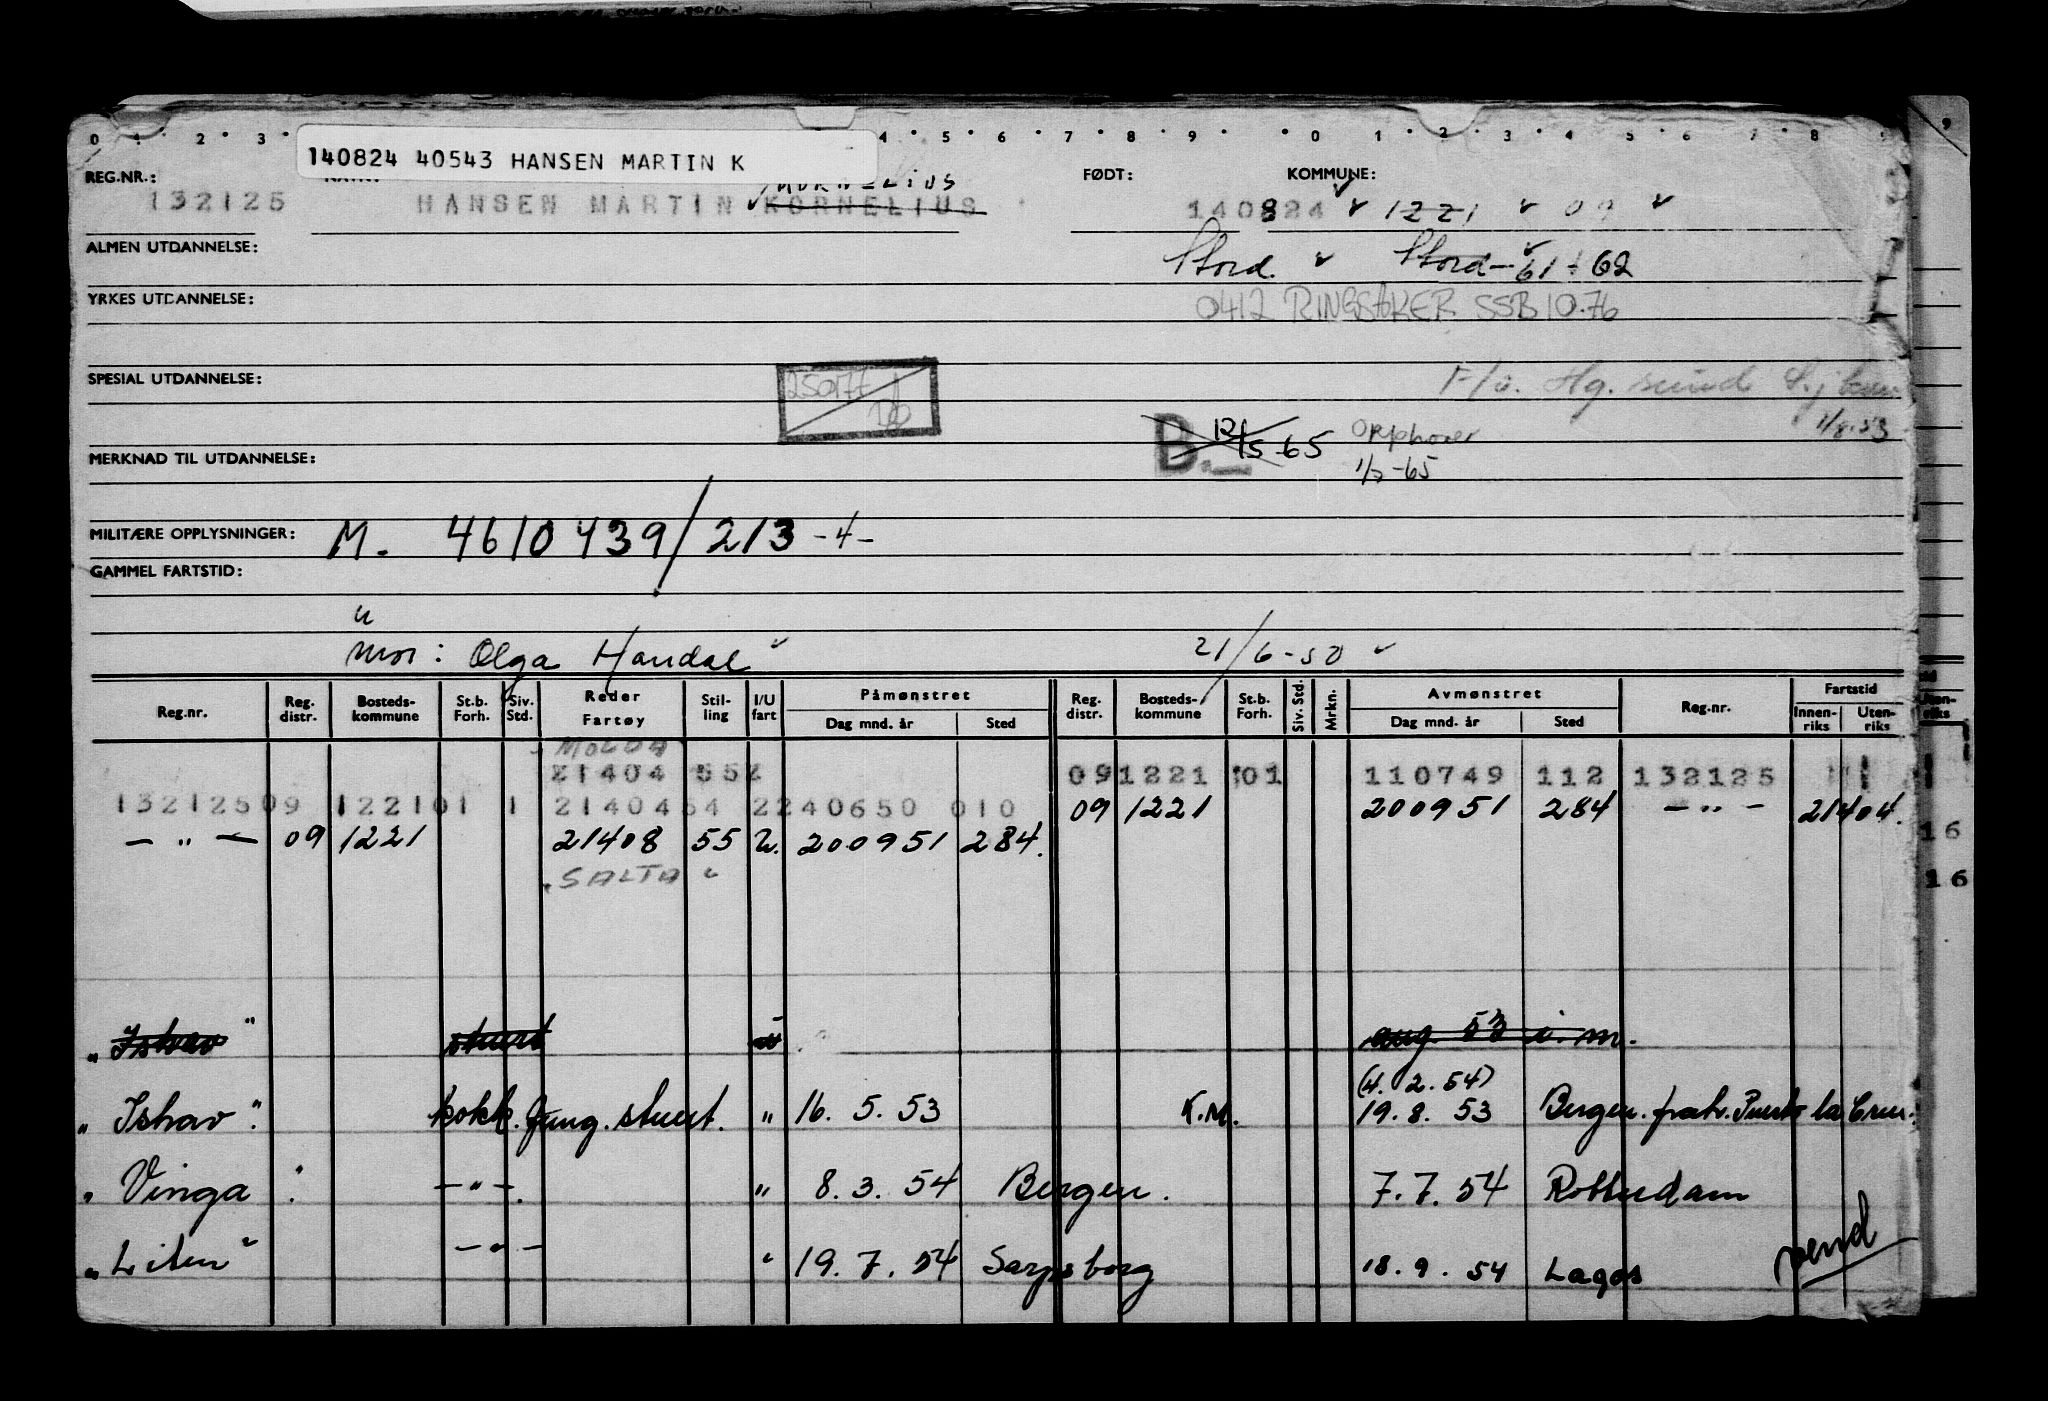 0 1 2 3 4 5 6 7 8 9 0 1 2 3 4 5 6 7 8 9
140824 40543 HANSEN MARTIN K
REG.NR.: FØDT: KOMMUNE:
132125 HANSEN MARTIN KORNELIUS 140824 1221 09
ALMEN UTDANNELSE: Stord. Stord-61-62
YRKES UTDANNELSE: 0412 RINGSAKER SSB 10.76
SPESIAL UTDANNELSE: 250177
F/u. Hg. sund
1/8.53
B. 12/5-65 Opphører
MERKNAD TIL UTDANNELSE: 1/5-65
MILITÆRE OPPLYSNINGER: M. 4610439/213-4-
GAMMEL FARTSTID:
u
mor: Olga Handal 21/6-50
Reg.nr. Reg. distr. Bosteds-kommune St.b. Forh. Siv. Std. Reder Fartøy Stil-ling I/U fart Påmønstret Dag mnd. år Sted Reg. distr. Bosteds-kommune St.b. Forh. Siv. Std. Mrkn. Avmønstret Dag mnd. år Sted Reg.nr. Fartstid Innen-riks Uten-riks
MOLDA
21404 552 09 1221 01 110749 112 132125
132125 09 1221 01 1 21404 54 2 240650 010 09 1221 200951 284 - " - 21404.
- " - 09 1221 21408 55 U. 200951 284.
SALTA
"Iskav" stuert u aug. 53 i. m.
(4. 2. 54)
"Iskav". kokk. Jung. stuert. " 16. 5. 53 K.M. 19. 8. 53 Bergen. fratr. Puerto la Cruz.
"Vinga". - " -. " 8. 3. 54 Bergen. 7. 7. 54 Rotterdam
"Liten" - " - " 19. 7. 54 Sarpsborg 18. 9. 54 Lagos
vend
16
16